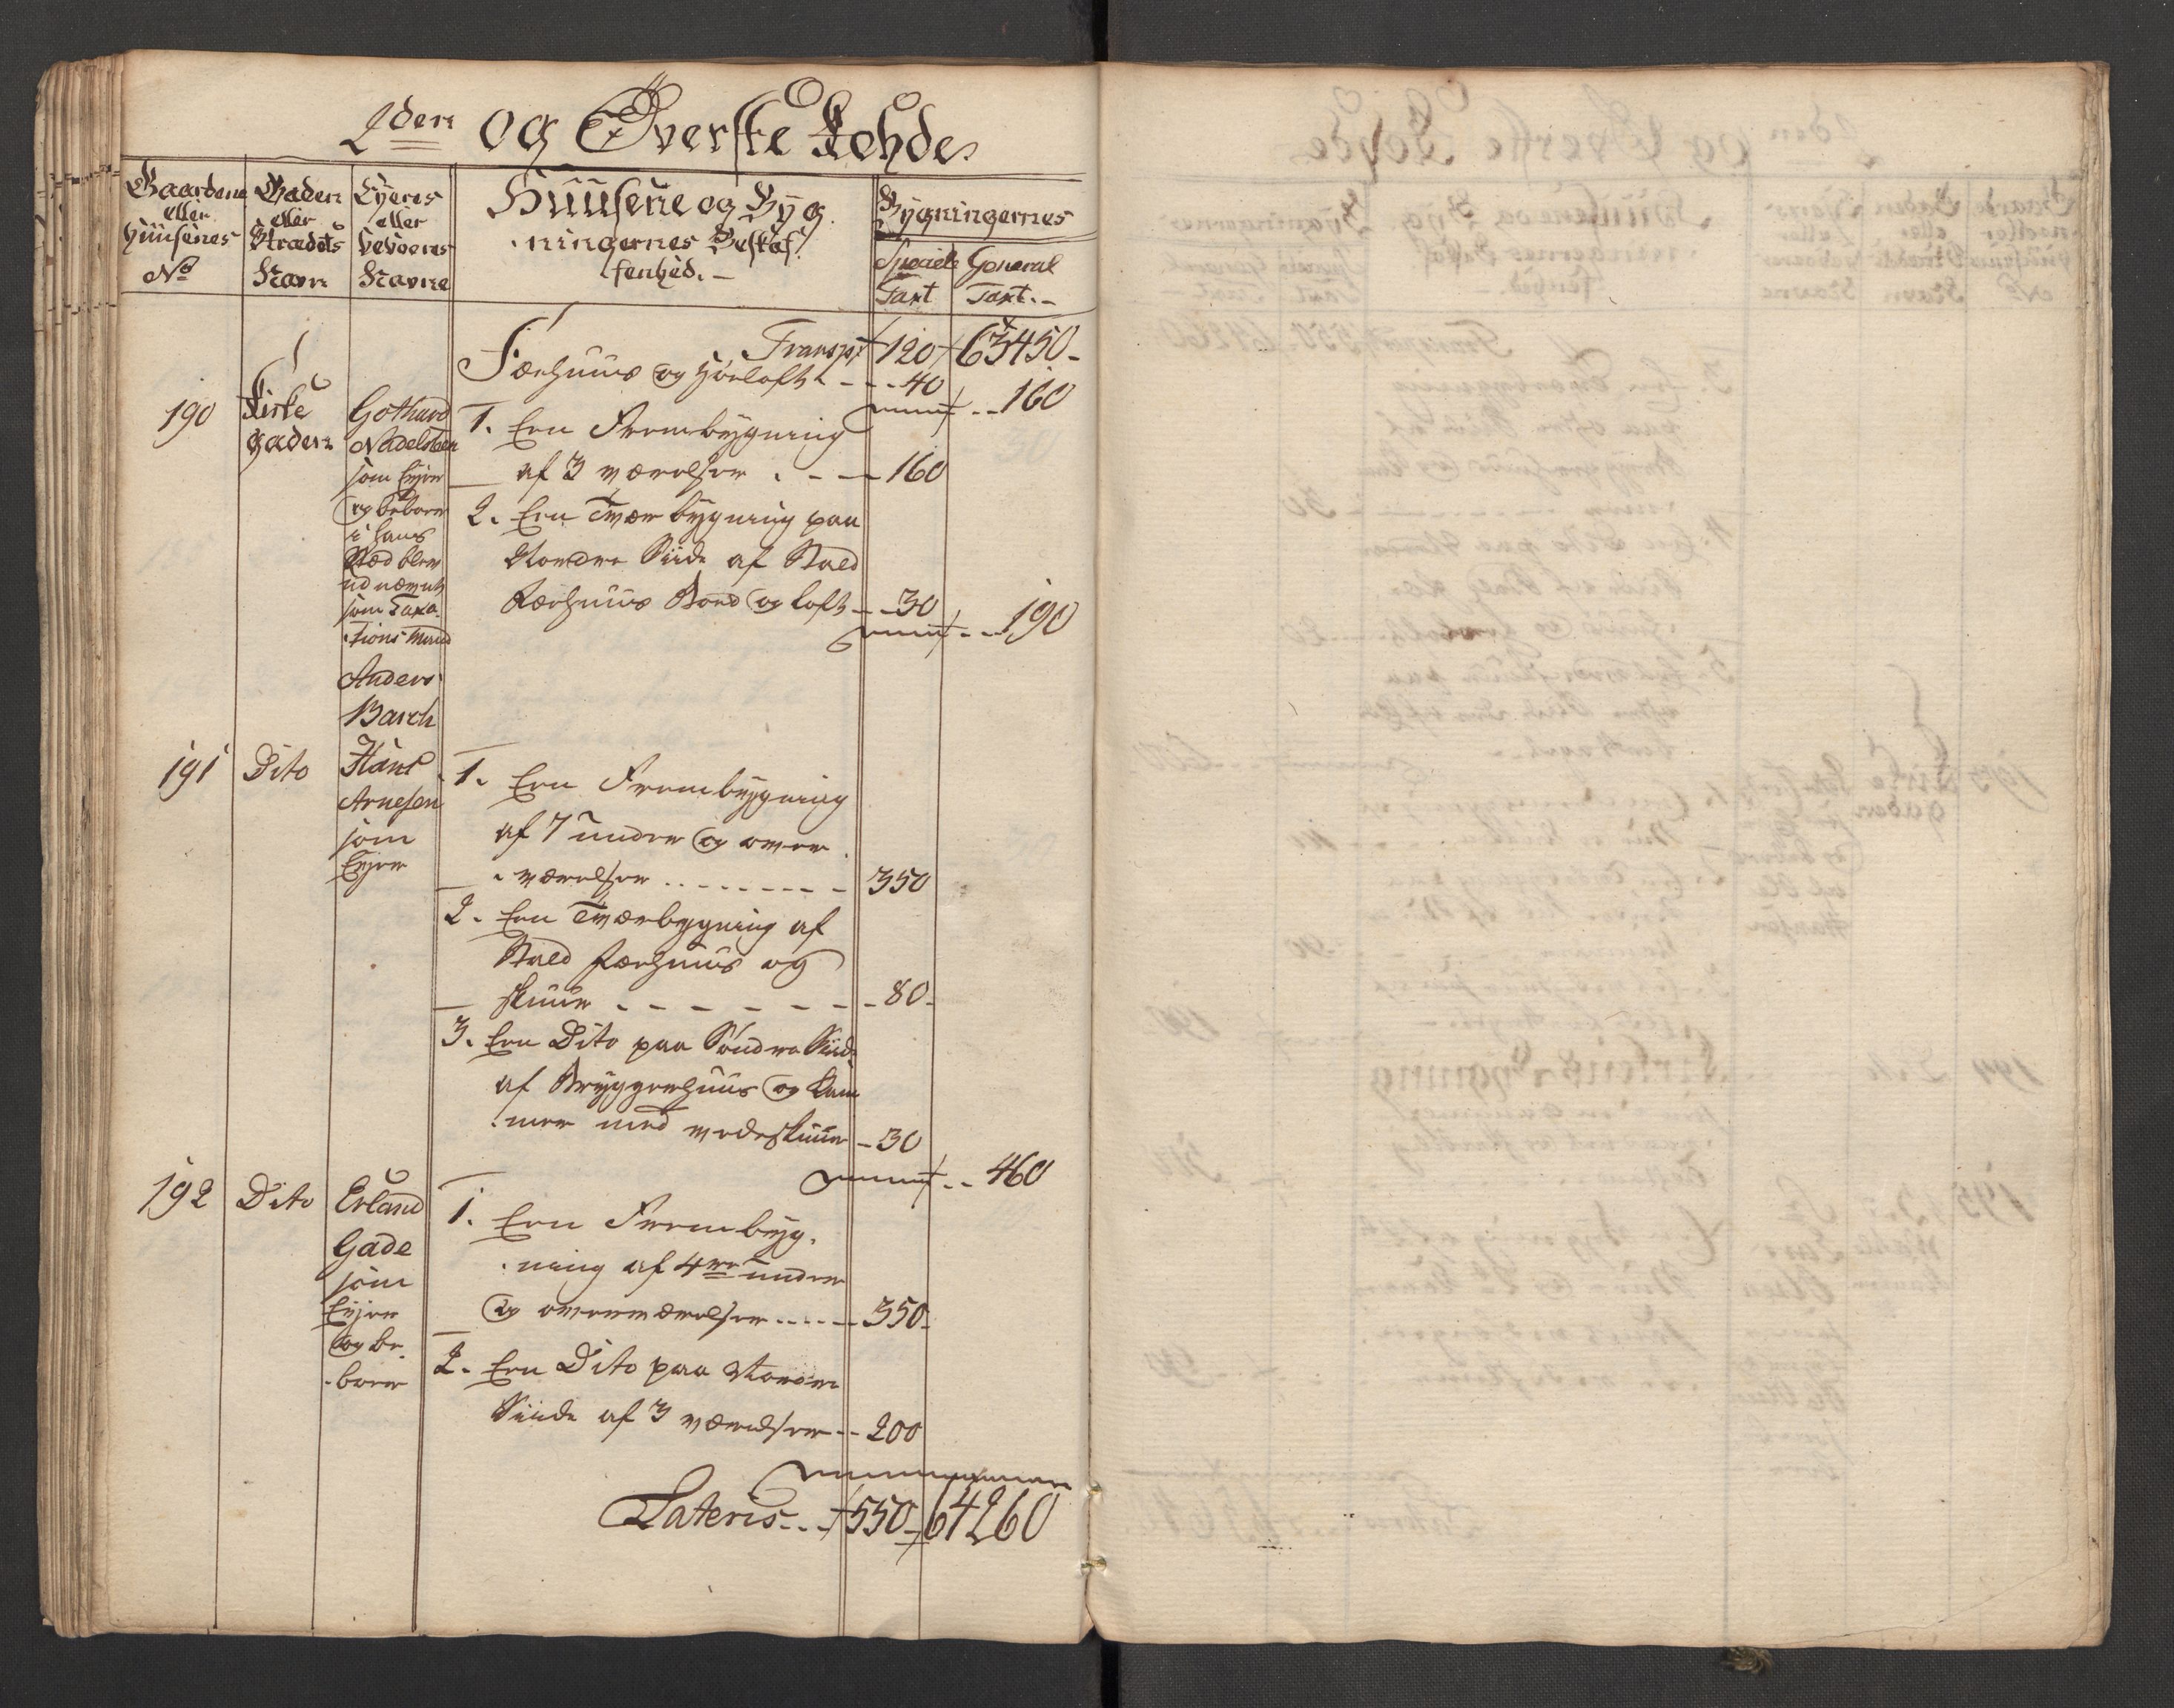 2den og Øverste Rohde
Gaardenes eller Huusenes No
Gaden eller Strædets Navn
Eyeres eller beboeres Navne
Huusene og Byg
ningernes Beskaf
fenhed. -
Bygningernes
Speciele Taxt
General Taxt. -
Transpt 120 63450 -
Fæehuus og Høeloft - - - 40
- - 160
190
Kirke
gaden
Gothard
Nadelsten
som Eyer
og beboer
i hans
Sted blev
udnævnt
som Taxa
tions Mand
Anders
Barch
1. Een Frembygning
af 3 værelser . - - 160
2. Een Tværbygning paa
Nordre Siide af Stald
Fæehuus Boed og loft - - 30
- - 190
191
Dito
Hans
Arnesen
som
Eyer
1. Een Frembygning
af 7 under og over
værelser - - - - 350
2. Een Tværbygning af
Stald fæehuus og
skuur - - - - - - 80 -
3. Een Dito paa Søndre Siide
af Bryggerhuus og Kam
mer med vedeskuur - 30
- - 460
192
Dito
Erland
Gade
som
Eyer
og be
boer
1. Een Frembyg
ning af 4re under
og overværelser - - - - 350 -
2. Een Dito paa Nordre
Siide af 3 værelser - - 200
Lateris - - - 550 - 64260